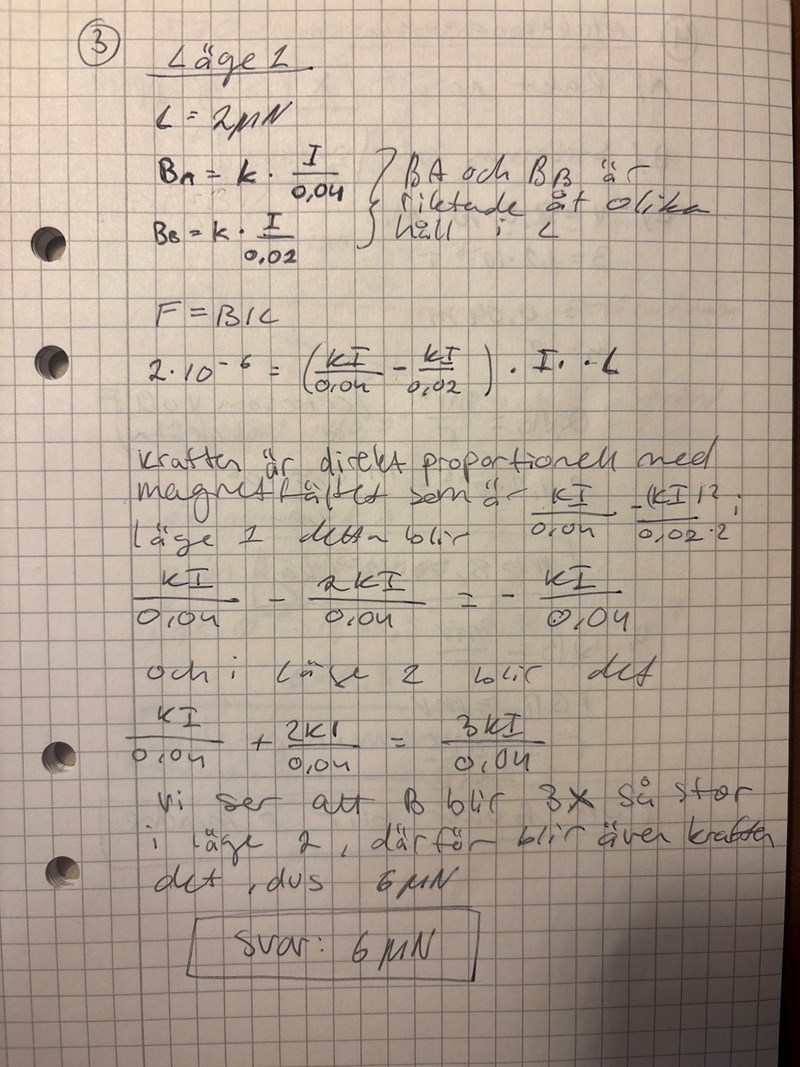 3
Läge 1
L = 2μN
BA = k · I/0,04 } BA och BB är riktade åt olika håll i L
BB = k · I/0,02
F = BIL
2·10⁻⁶ = (kI/0,04 - kI/0,02) · I · · L
kraften är direkt proportionell med
magnetfältet som är kI/0,04 - (kI)2/0,02·2 i
läge 1 detta blir
kI/0,04 - 2kI/0,04 = - kI/0,04
och i läge 2 blir det
kI/0,04 + 2kI/0,04 = 3kI/0,04
vi ser att B blir 3x så stor
i läge 2, därför blir även kraften
det, dvs 6μN
Svar: 6μN